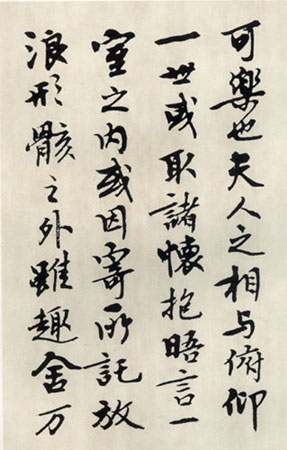 可樂也夫人之相与俯仰
一世或取諸懐抱晤言一
室之内或因寄所託放
浪形骸之外雖趣舍万